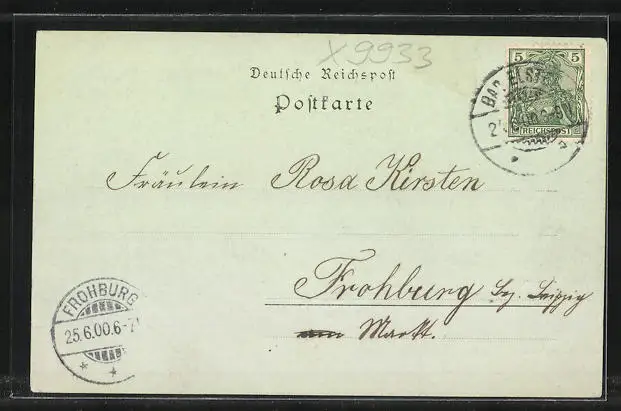 X9933
Deutsche Reichspost
Postkarte
5 5
REICHSPOST
BAD ELSTER
Fräulein Rosa Kirsten
Frohburg Bz. Leipzig
am Markt.
FROHBURG
25.6.00.6-7